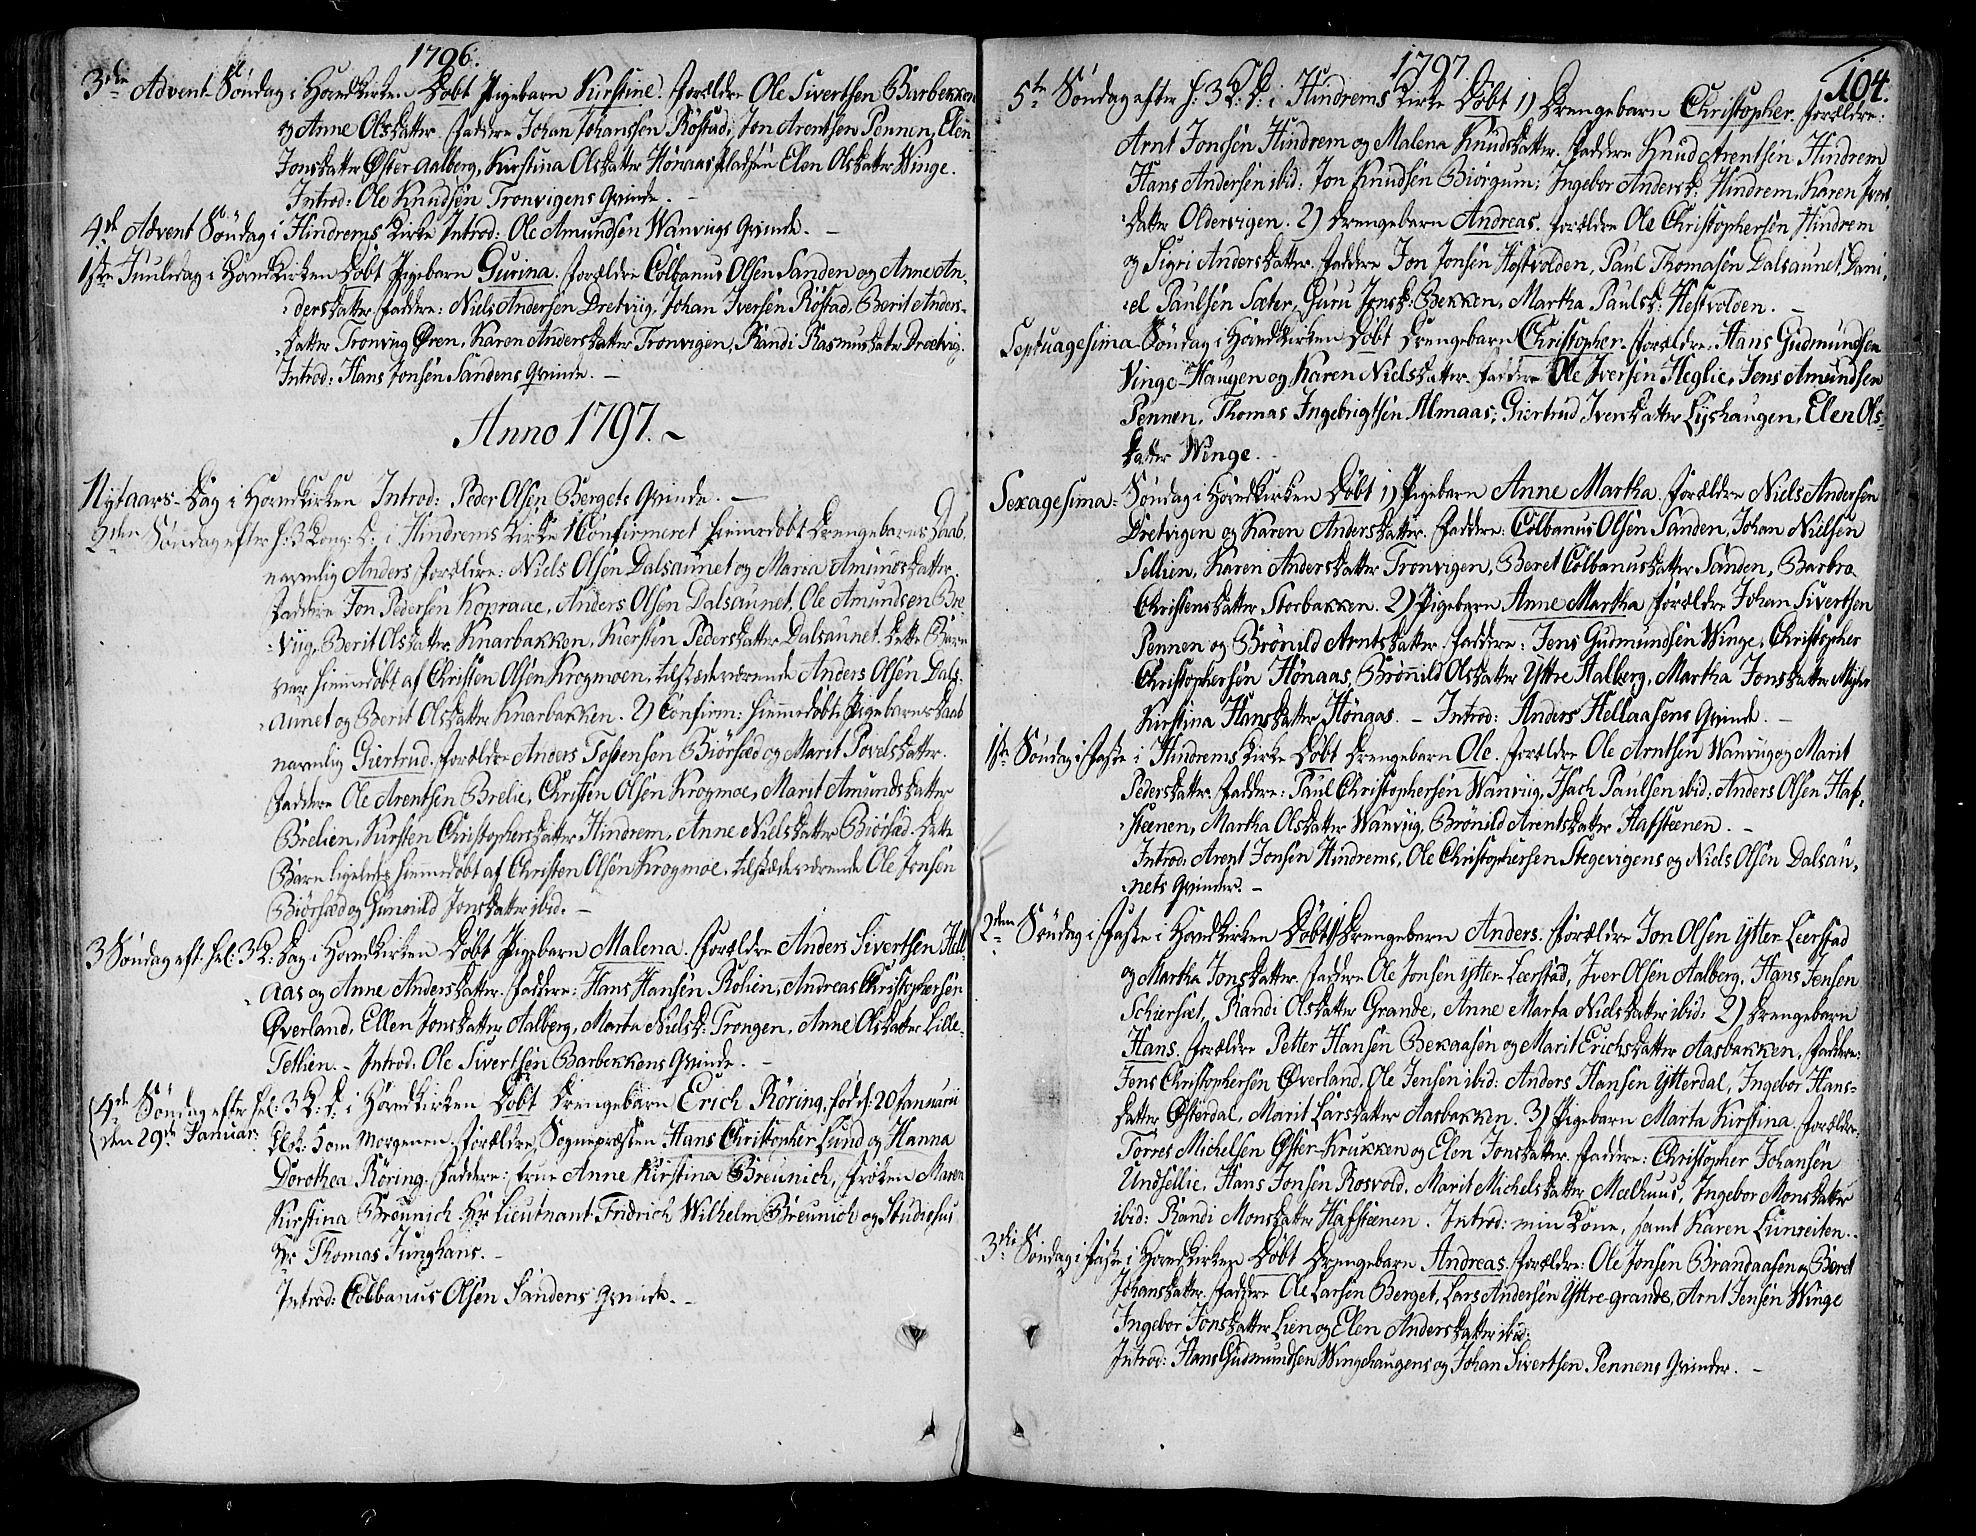 1796.
3die Advent Søndag i Hovedkirken Døbt Pigebarn Kirstine. Forældre Ole Sivertsen Barbekken
og Anne Olsdatter. Faddere Johan Johanssen Røstad, Jon Arentsen Pennen, Elen
Jonsdatter Øster Aalberg, Kirstina Olsdatter Hønaaspladsen Elen Olsdatter Winge.
Introd: Ole Knudsen Tronvigens Qvinde. –
4de Advent Søndag i Hindrems Kirke Introd: Ole Amundsen Wanviigs Qvinde. –
1ste Juuledag i Hovedkirken Døbt Pigebarn Gurina. Forældre Colbanus Olsen Sanden og Anne An-
dersdatter. Faddere: Niels Andersen Dretviig, Johan Iversen Røstad, Berit Anders-
datter Tronviig Øren, Karen Andersdatter Tronvigen, Randi Rasmusdatter Drætvig.
Introd: Hans Jonsen Sandens Qvinde. –
Anno 1797. ~
Nytaars-Dag i Hovedkirken Introd: Peder Olsen Bergets Qvinde. –
2den Søndag efter H: 3 Kong: D: i Hindrems Kirke 1 Confirmeret hiemmedøbt Drengebarns Daab,
navnlig Anders Forældre: Niels Olsen Dalsaunet og Maria Amundsdatter.
Faddere Jon Pedersen Kopraae, Anders Olsen Dalsaunet, Ole Amundsen Bre-
viig, Berit Olsdatter Knarbakken, Kiersten Pedersdatter Dalsaunet. Dette Barn
var hiemmedøbt af Christen Olsen Krogmoen, tilstædeværende Anders Olsen Dals-
aunet og Berit Olsdatter Knarbakken. 2) Confirm: hiemmedøbt Pigebarns Daab
navnlig Giertrud. Forældre Anders Tostensen Biørsæd og Marit Povelsdatter.
Faddere Ole Arentsen Brelie, Christen Olsen Krogmoe, Marit Amundsdatter
Brelien, Kirsten Christophersdatter Hindrem, Anne Nielsdatter Biørsæd. Dette
Barn ligeledes hiemmedøbt af Christen Olsen Krogmoe, tilstædeværende Ole Jonsen
Biørsæd og Gunnild Jonsdatter ibid. –
3 Søndag eft. Hel: 3 K: Dag i Hovedkirken Døbt Pigebarn Malena. Forældre Anders Sivertsen Hell-
aas og Anne Andersdatter. Faddere: Hans Hansen Rolien, Andreas Christophersen
Øverland, Ellen Jonsdatter Aalberg, Marta Nielsd: Trongen, Anne Olsdatter Lille-
Tetlien. – Introd: Ole Sivertsen Barbekkens Qvinde. –
4de Søndag efter Hel: 3 K: D: i Hovedkirken Døbt Drengebarn Erich Röring, fød d: 20 Januarii
den 29de Januar. Kl: 5 om Morgenen. Forældre Sognepræsten Hans Christopher Lund og Hanna
Dorothea Röring. Faddere: Frue Anne Kirstina Breunich, Frøken Maren
Kirstina Breunich. Hr Lieutnant Fridrich Wilhelm Breunich og Studiosus
Hr Thomas Junghans. –
Introd: Colbanus Olsen Sandens Qvinde. –
1797.
104.
5te Søndag efter H: 3 K: D: i Hindrems Kirke Døbt 1) Drengebarn Christopher. Forældre:
Arnt Jonsen Hindrem og Malena Knudsdatter. Faddere Knud Arentsen Hindrem
Hans Andersen ibid: Jon Knudsen Biörgum; Ingebor Andersd: Hindrem, Karen Ivers
datter Oldervigen. 2) Drengebarn Andreas. Forældre Ole Christophersen Hindrem
og Sigri Andersdatter. Faddere Jon Jonsen Hestvolden, Paul Thomasen Dalsaunet, Dani-
el Paulsen Sæter, Guru Jonsd: Bekken, Martha Paulsd: Hestvolden. –
Septuagesima Søndag i Hovedkirken Døbt Drengebarn Christopher. Forældre. Hans Gudmundsen
Vinge-Haugen og Karen Nielsdatter. Faddere Ole Iversen Heglie, Jens Amundsen
Pennen, Thomas Ingebrigtsen Almaas; Giertrud Iversdatter Lyshaugen, Elen Ols-
datter Winge. –
Sexagesima: Søndag i Hovedkirken Døbt 1) Pigebarn Anne Martha. Forældre Niels Andersen
Dretvigen og Karen Andersdatter. Faddere: Colbanus Olsen Sanden, Johan Nielsen
Sellien, Karen Andersdatter Tronvigen, Beret Colbanusdatter Sanden, Barbro
Christensdatter Storbakken. 2) Pigebarn Anne Martha Forældre Johan Sivertsen
Pennen og Brønild Arntsdatter. Faddere: Jens Gudmundsen Winge, Christopher
Christophersen Hönaas, Brönild Olsdatter Yttre Aalberg, Martha Jonsdatter
Kirstina Hansdatter Höngas. – Introd: Anders Hellaasens Qvinde. –
1ste Søndag i Faste i Hindrems Kirke Døbt Drengebarn Ole. Forældre Ole Arntsen Wanviig og Marit
Pedersdatter. Faddere: Paul Christophersen Wanviig, Isach Paulsen ibid: Anders Olsen Haf-
steenen, Martha Olsdatter Wanviig, Brönild Arentsdatter Hafsteenen. –
Introd: Arent Jonsen Hindrems, Ole Christophersen Stegevigens og Niels Olsen Dalsau-
nets Qvinder. –
2den Søndag i Faste i Hovedkirken Døbt 1) Drengebarn Anders. Forældre Jon Olsen Ytter Leerstad
og Martha Jonsdatter. Faddere Ole Jonsen Ytter-Leerstad, Iver Olsen Aalberg, Hans Jensen
Schiersæt, Randi Olsdatter Grande, Anne Marta Nielsdatter ibid: 2) Drengebarn
Hans. Forældre Petter Hansen Bekaasen og Marit Erichsdatter Aasbakken. Faddere:
Jens Christophersen Øverland, Ole Jensen ibid: Anders Hansen Ytterdal, Ingebor Hans-
datter Østerdal, Marit Larsdatter Aasbakken. 3) Pigebarn Marta Kirstina. Forældre:
Torres Michelsen Øster-Krukken og Elen Jonsdatter. Faddere: Christopher Johansen
Undsellie, Hans Jonsen Rosvold, Marit Michelsdatter Meelhuus, Ingebor Monsdatter
ibid: Randi Monsdatter Hafsteenen. Introd: min Kone, samt Karen Lunseiten.
3die Søndag i Faste i Hovedkirken Døbt Drengebarn Andreas. Forældre: Ole Jonsen Brandaasen og Beret
Johansdatter. Faddere Ole Larsen Berget, Lars Andersen Yttre-grande, Arnt Jensen Winge
Ingebor Jonsdatter Lien og Elen Andersdatter ibid:
Introd: Hans Gudmundsen Wingehaugens og Johan Sivertsen Pennens Qvinder. –